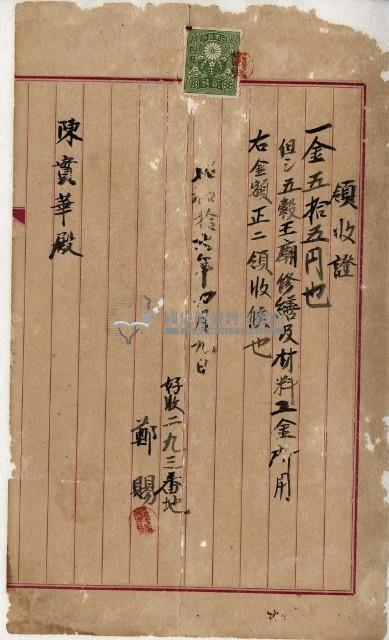 領收證
一金五拾五円也
但シ五穀王廟修繕及材料工金所用
右金額正ニ領收候也
昭和拾六年四月九日
好收二九三番地
鄭賜
陳實華殿